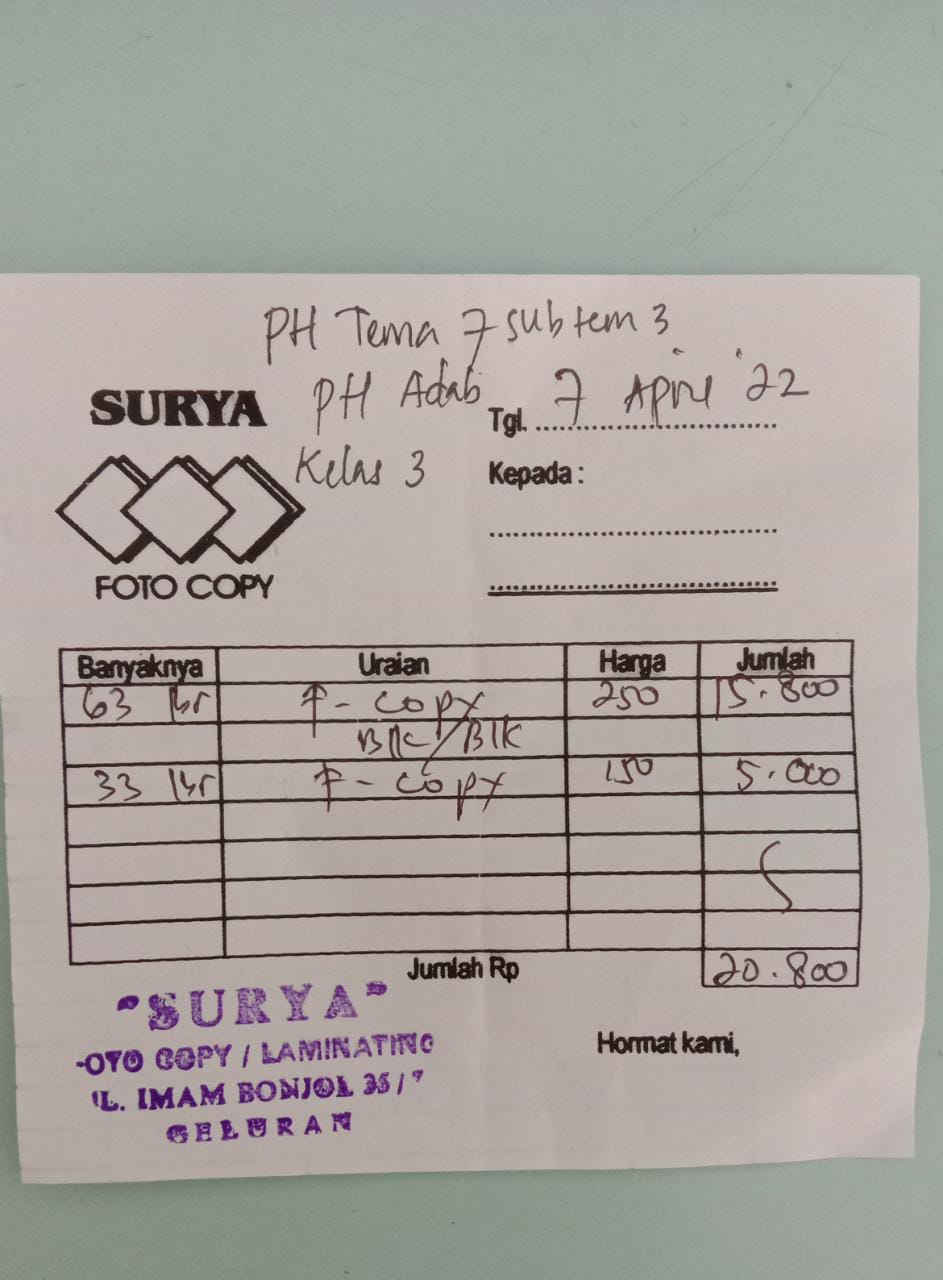 PH Tema 7 subtem 3
SURYA
PH Adab
Tgl. 7 April '22
Kelas 3
Kepada :
FOTO COPY
Banyaknya Uraian Harga Jumlah
63 lbr F - copy 250 15.800
Blk/Blk
33 lbr F - copy 150 5.000
Jumlah Rp 20.800
"SURYA"
OTO COPY / LAMINATING
L. IMAM BONJOL 35 /
GELURAN
Hormat kami,